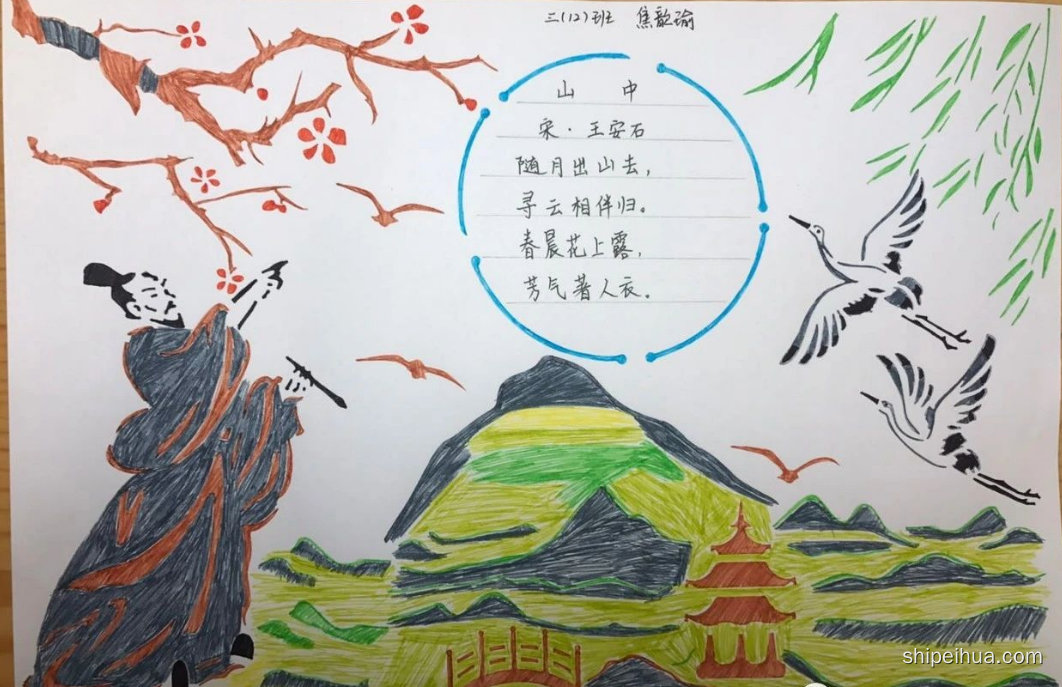 三(12)班 焦歆瑜
山 中
宋·王安石
随月出山去,
寻云相伴归。
春晨花上露,
芳气著人衣。
shipeihua.com